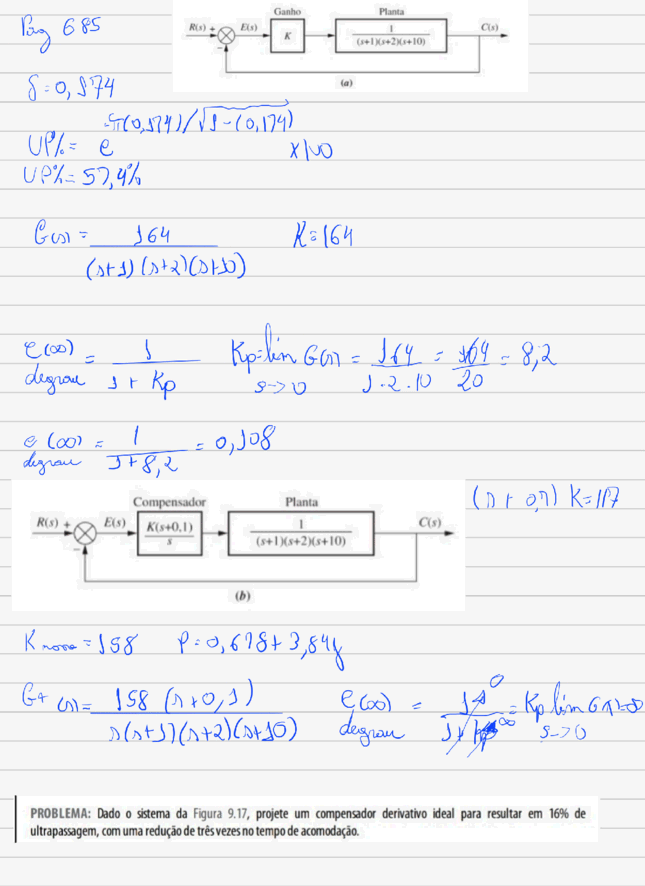 Pág 685
Ganho Planta
R(s) + E(s) K 1/((s+1)(s+2)(s+10)) C(s)
−
(a)
δ=0,174
UP%= e^(-π(0,174)/√1-(0,174)) x100
UP%=57,4%
G(s) = 164/((s+1)(s+2)(s+10)) K=164
e(∞) degrau = 1/(1+Kp) Kp=lim s->0 G(s) = 164/(1·2·10) = 164/20 = 8,2
e(∞) degrau = 1/(1+8,2) = 0,108
Compensador Planta
(s + 0,1) K=117
R(s) + E(s) K(s+0,1)/s 1/((s+1)(s+2)(s+10)) C(s)
−
(b)
K novo=158 P=0,678+3,84j
G+(s)= 158(s+0,1)/(s(s+1)(s+2)(s+10)) e(∞) degrau = 1/(1+Kp) = Kp lim s->0 G(s)=∞
PROBLEMA: Dado o sistema da Figura 9.17, projete um compensador derivativo ideal para resultar em 16% de
ultrapassagem, com uma redução de três vezes no tempo de acomodação.